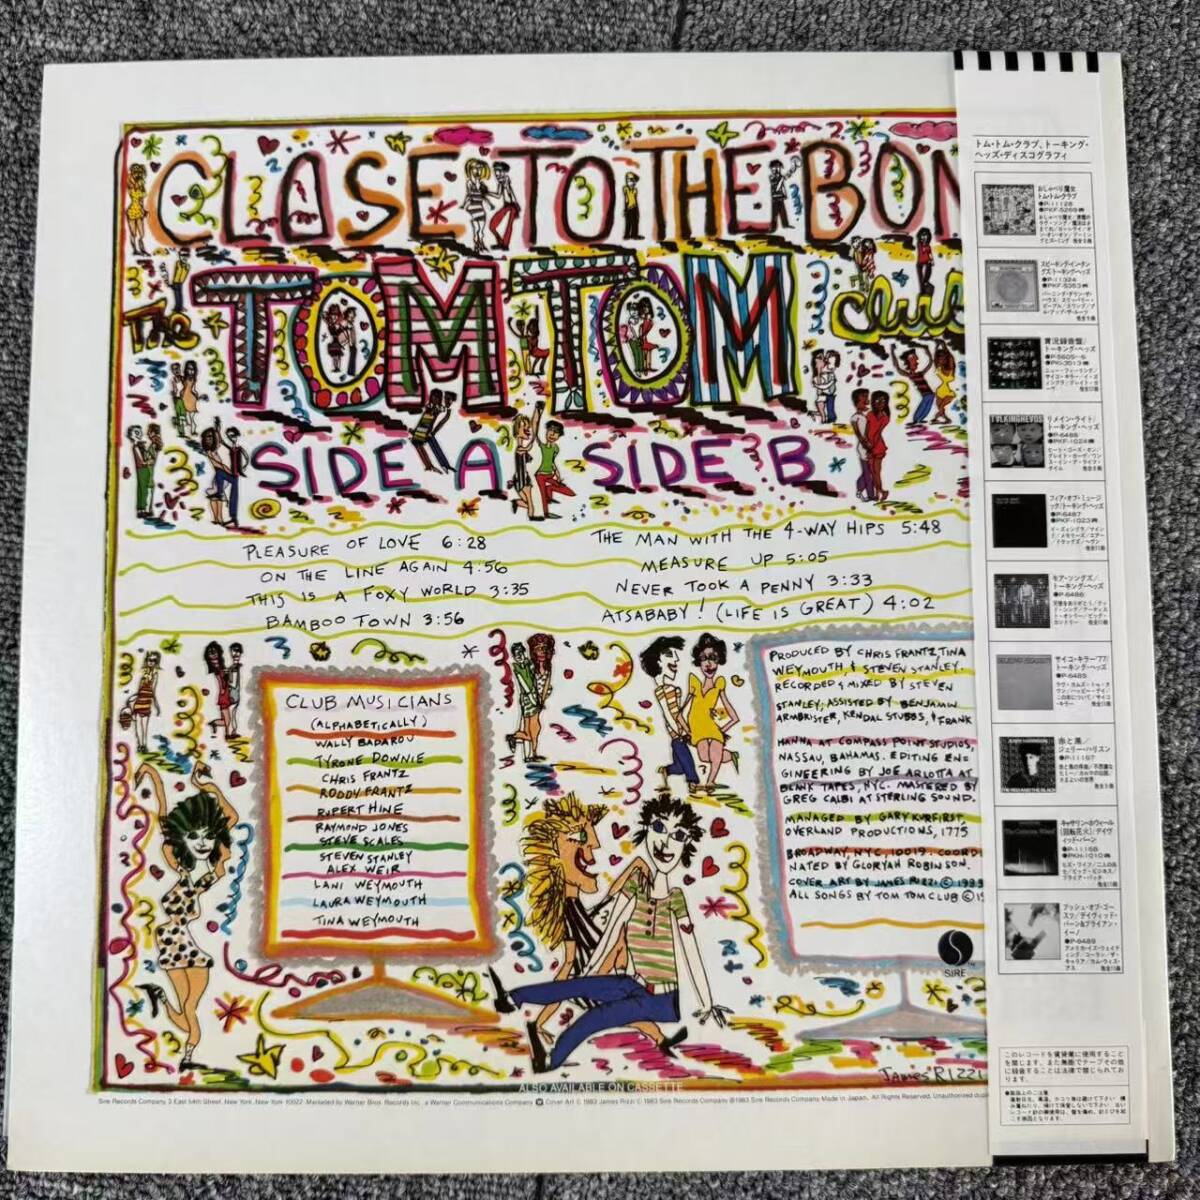 CLOSE TO THE BON
The TOM TOM Club
SIDE A SIDE B
PLEASURE OF LOVE 6:28
ON THE LINE AGAIN 4:56
THIS IS A FOXY WORLD 3:35
BAMBOO TOWN 3:56
THE MAN WITH THE 4-WAY HIPS 5:48
MEASURE UP 5:05
NEVER TOOK A PENNY 3:33
ATSABABY! (LIFE IS GREAT) 4:02
CLUB MUSICIANS
(ALPHABETICALLY)
WALLY BADAROU
TYRONE DOWNIE
CHRIS FRANTZ
RODDY FRANTZ
RUPERT HINE
RAYMOND JONES
STEVE SCALES
STEVEN STANLEY
ALEX WEIR
LANI WEYMOUTH
LAURA WEYMOUTH
TINA WEYMOUTH
PRODUCED BY CHRIS FRANTZ, TINA
WEYMOUTH, & STEVEN STANLEY.
RECORDED & MIXED BY STEVEN
STANLEY; ASSISTED BY BENJAMIN
ARMBRISTER, KENDAL STUBBS, & FRANK
HANNA AT COMPASS POINT STUDIOS,
NASSAU, BAHAMAS. EDITING EN=
GINEERING BY JOE ARLOTTA AT
BLNK TAPES, NYC. MASTERED BY
GREG CALBI AT STERLING SOUND.
MANAGED BY GARY KURFIRST,
OVERLAND PRODUCTIONS, 1775
BROADWAY NYC, 10019. COORD
NATED BY GLORYAH ROBINSON.
COVER ART BY JAMES RIZZI © 1983
ALL SONGS BY TOM TOM CLUB © 19
SIRE TM
James RIZZI
ALSO AVAILABLE ON CASSETTE
Sire Records Company 3 East 54th Street, New York, New York 10022. Marketed by Warner Bros. Records Inc., a Warner Communications Company Cover Art © 1983 James Rizzi © 1983 Sire Records Company ℗1983 Sire Records Company Made in Japan. All Rights Reserved. Unauthorized dupli
トム・トム・クラブ、トーキング・
ヘッズ・ディスコグラフィ
おしゃべり魔女
トム・トム・クラブ
●P-11128
スピーキング・イン・タン
グズ/トーキング・ヘッズ
●P-11324
實況録音盤/
トーキング・ヘッズ
●P-5605~6
リメイン・ライト/
トーキング・ヘッズ
●P-6488
フィア・オブ・ミュージ
ック/トーキング・ヘッズ
●P-6487
モア・ソングズ/
トーキング・ヘッズ
●P-6486
サイコ・キラー'77/
トーキング・ヘッズ
●P-6485
赤と黒/
ジェリー・ハリスン
●P-11167
キャサリン・ホウィール
(回転花火)/デイヴ
ィッド・バーン
●P-11158
ブッシュ・オブ・ゴー
スツ/デイヴィッド・
バーン&ブライアン・
イーノ
●P-6489
このレコードを賃貸業に使用すること
を禁じます。また無断でテープその他
に録音することは法律で禁じられてお
ります。